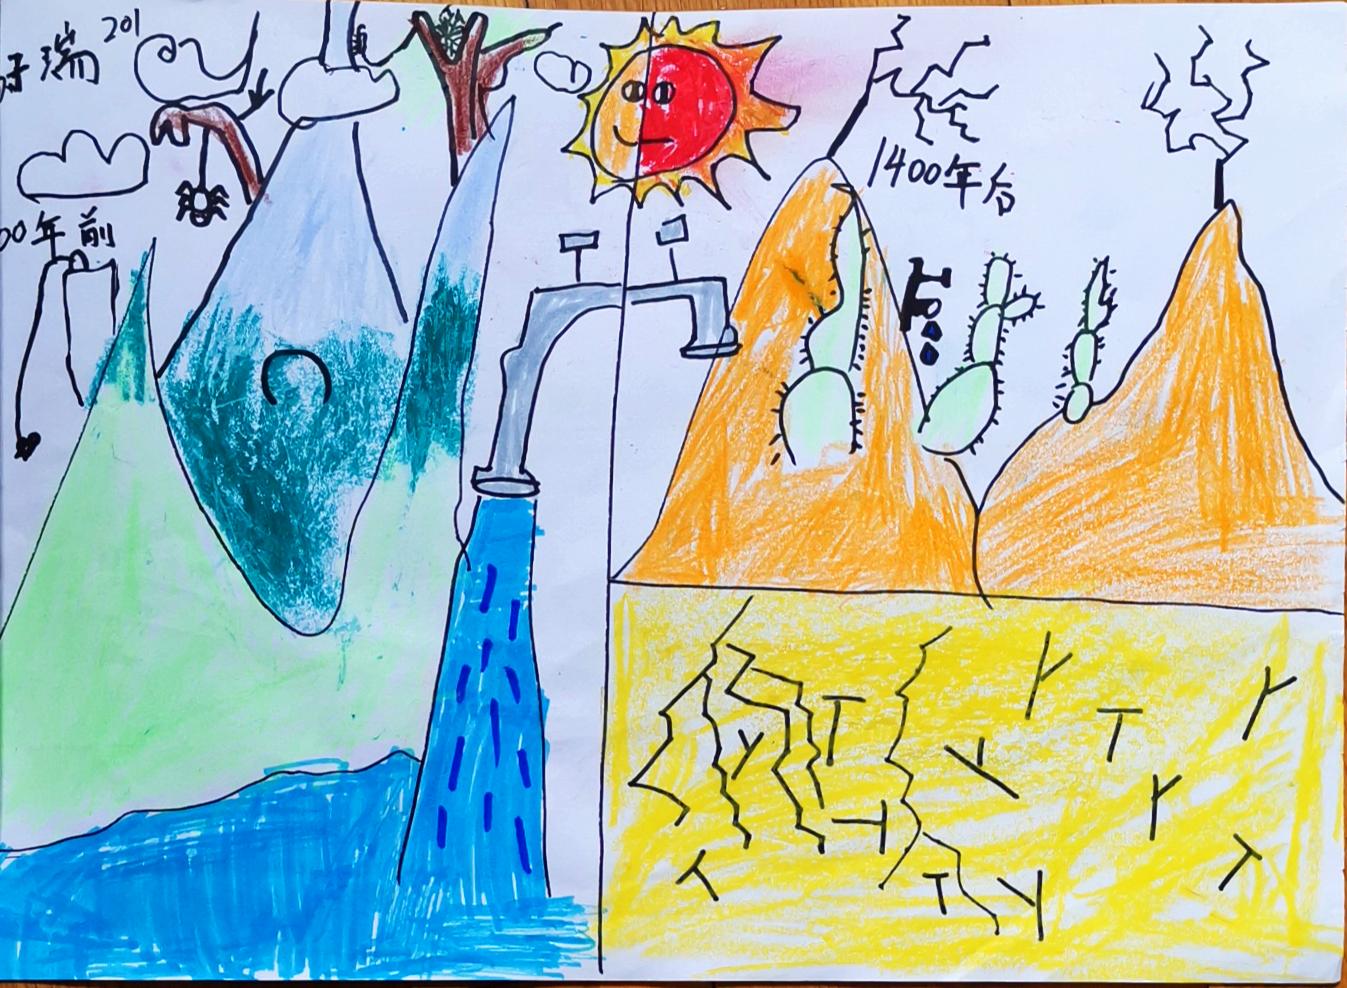 瑞 201
00年前
1400年后